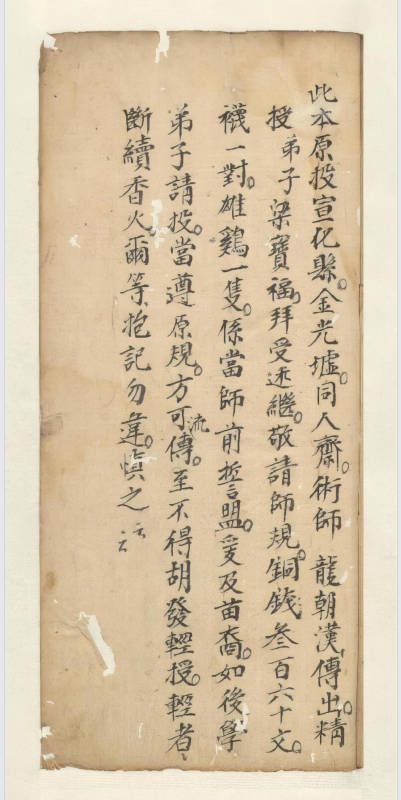 此本原投宣化縣。金光墟。同人齋。術師 龍朝漢傳出。精
授弟子梁寶福。拜受述繼。敬請師規。銅錢叁百六十文。
襪一對。雄鷄一隻。係當師前誓盟。爰及苗裔。如後學
弟子請投。當遵原規。方可流傳。至不得胡發輕授。輕者
斷續香火。爾等抱記勿違。慎之